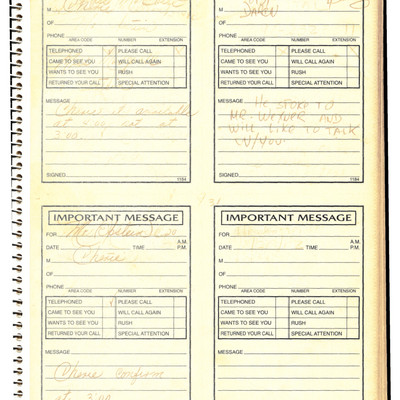 M
OF
PHONE
AREA CODE NUMBER EXTENSION
TELEPHONED PLEASE CALL
CAME TO SEE YOU WILL CALL AGAIN
WANTS TO SEE YOU RUSH
RETURNED YOUR CALL SPECIAL ATTENTION
MESSAGE
at
3:00
SIGNED 1184
M
OF
PHONE
AREA CODE NUMBER EXTENSION
TELEPHONED PLEASE CALL
CAME TO SEE YOU WILL CALL AGAIN
WANTS TO SEE YOU RUSH
RETURNED YOUR CALL SPECIAL ATTENTION
MESSAGE
HE SPOKE TO
MR. AND
WILL LIKE TO TALK
W/YOU.
SIGNED 1184
IMPORTANT MESSAGE
FOR Mr.
DATE TIME A.M. P.M.
M
OF
PHONE
AREA CODE NUMBER EXTENSION
TELEPHONED PLEASE CALL
CAME TO SEE YOU WILL CALL AGAIN
WANTS TO SEE YOU RUSH
RETURNED YOUR CALL SPECIAL ATTENTION
MESSAGE
confirm
at 3:00
IMPORTANT MESSAGE
FOR
DATE TIME A.M. P.M.
M
OF
PHONE
AREA CODE NUMBER EXTENSION
TELEPHONED PLEASE CALL
CAME TO SEE YOU WILL CALL AGAIN
WANTS TO SEE YOU RUSH
RETURNED YOUR CALL SPECIAL ATTENTION
MESSAGE